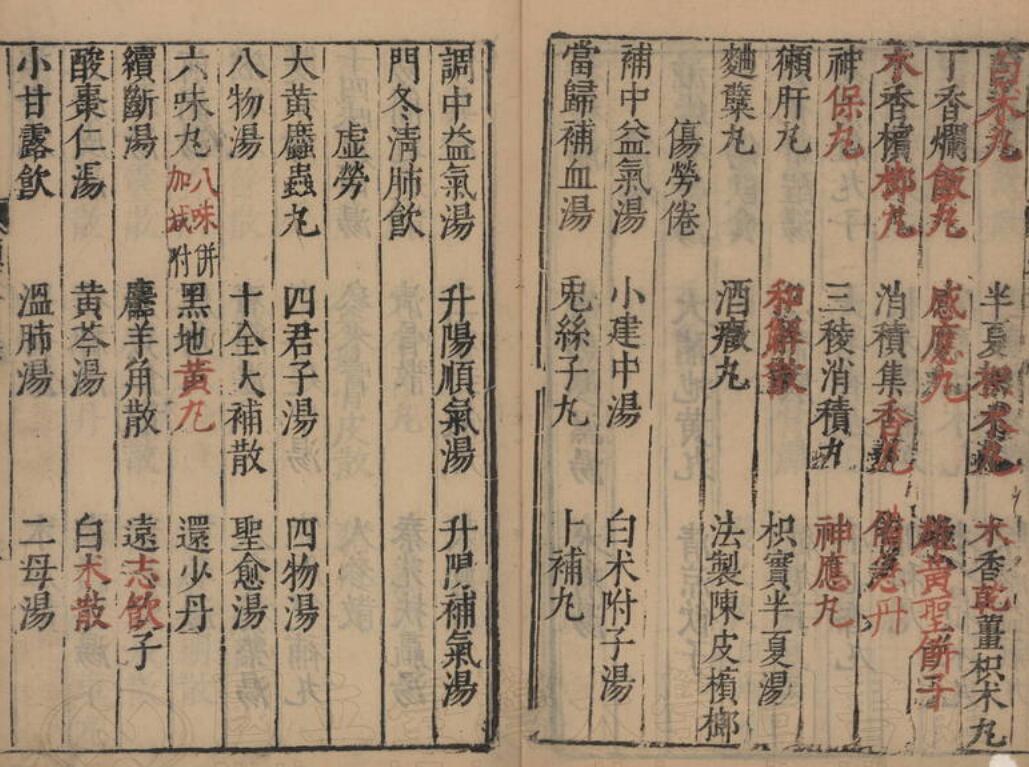 白朮丸 半夏枳朮丸 木香乾薑枳朮丸
丁香爛飯丸 感應丸 雄黃聖餅子
木香檳榔丸 消積集香丸 備急丹
神保丸 三稜消積丸 神應丸
獺肝丸 和解散 枳實半夏湯
麯糵丸 酒癥丸 法製陳皮檳榔
傷勞倦
補中益氣湯 小建中湯 白朮附子湯
當歸補血湯 兎絲子丸 卜補丸
調中益氣湯 升陽順氣湯 升陽補氣湯
門冬清肺飲
虚勞
大黃䗪蟲丸 四君子湯 四物湯
八物湯 十全大補散 聖愈湯
六味丸 八味併加减附 黑地黃丸 還少丹
續斷湯 麢羊角散 遠志飲子
酸棗仁湯 黃芩湯 白朮散
小甘露飲 溫肺湯 二母湯